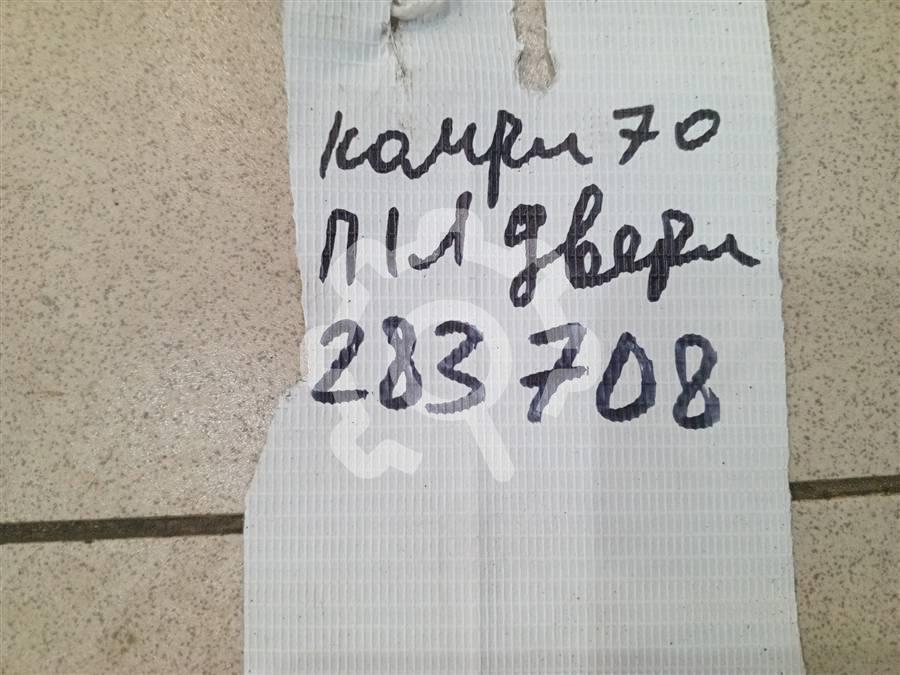 камри 70
П/Л двери
283708